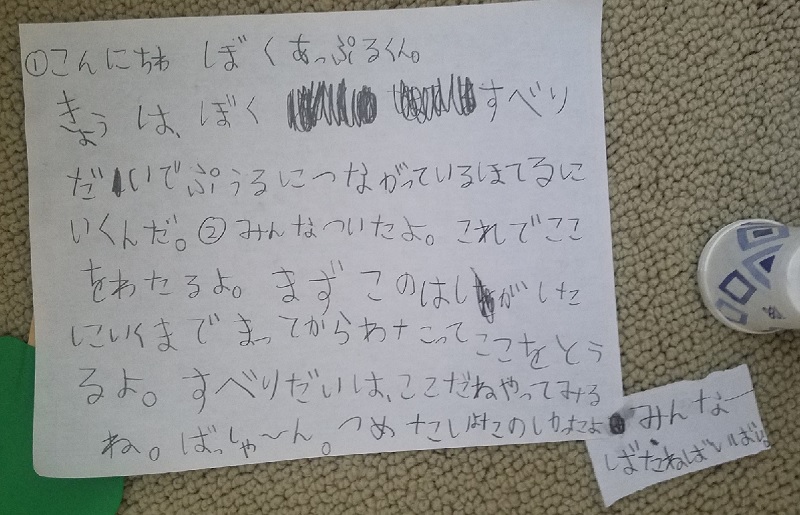 ①こんにちわ ぼくあっぷるくん。
きょうは、ぼく すべり
だいでぷぅるにつながっているほてるに
いくんだ。②みんなついたよ。これでここ
をわたるよ。まずこのはしがした
にいくまでまってからわたってここをとう
るよ。すべりだいは、ここだねやってみる
ね。ばっしゃ〜ん。つめたい
みんなー